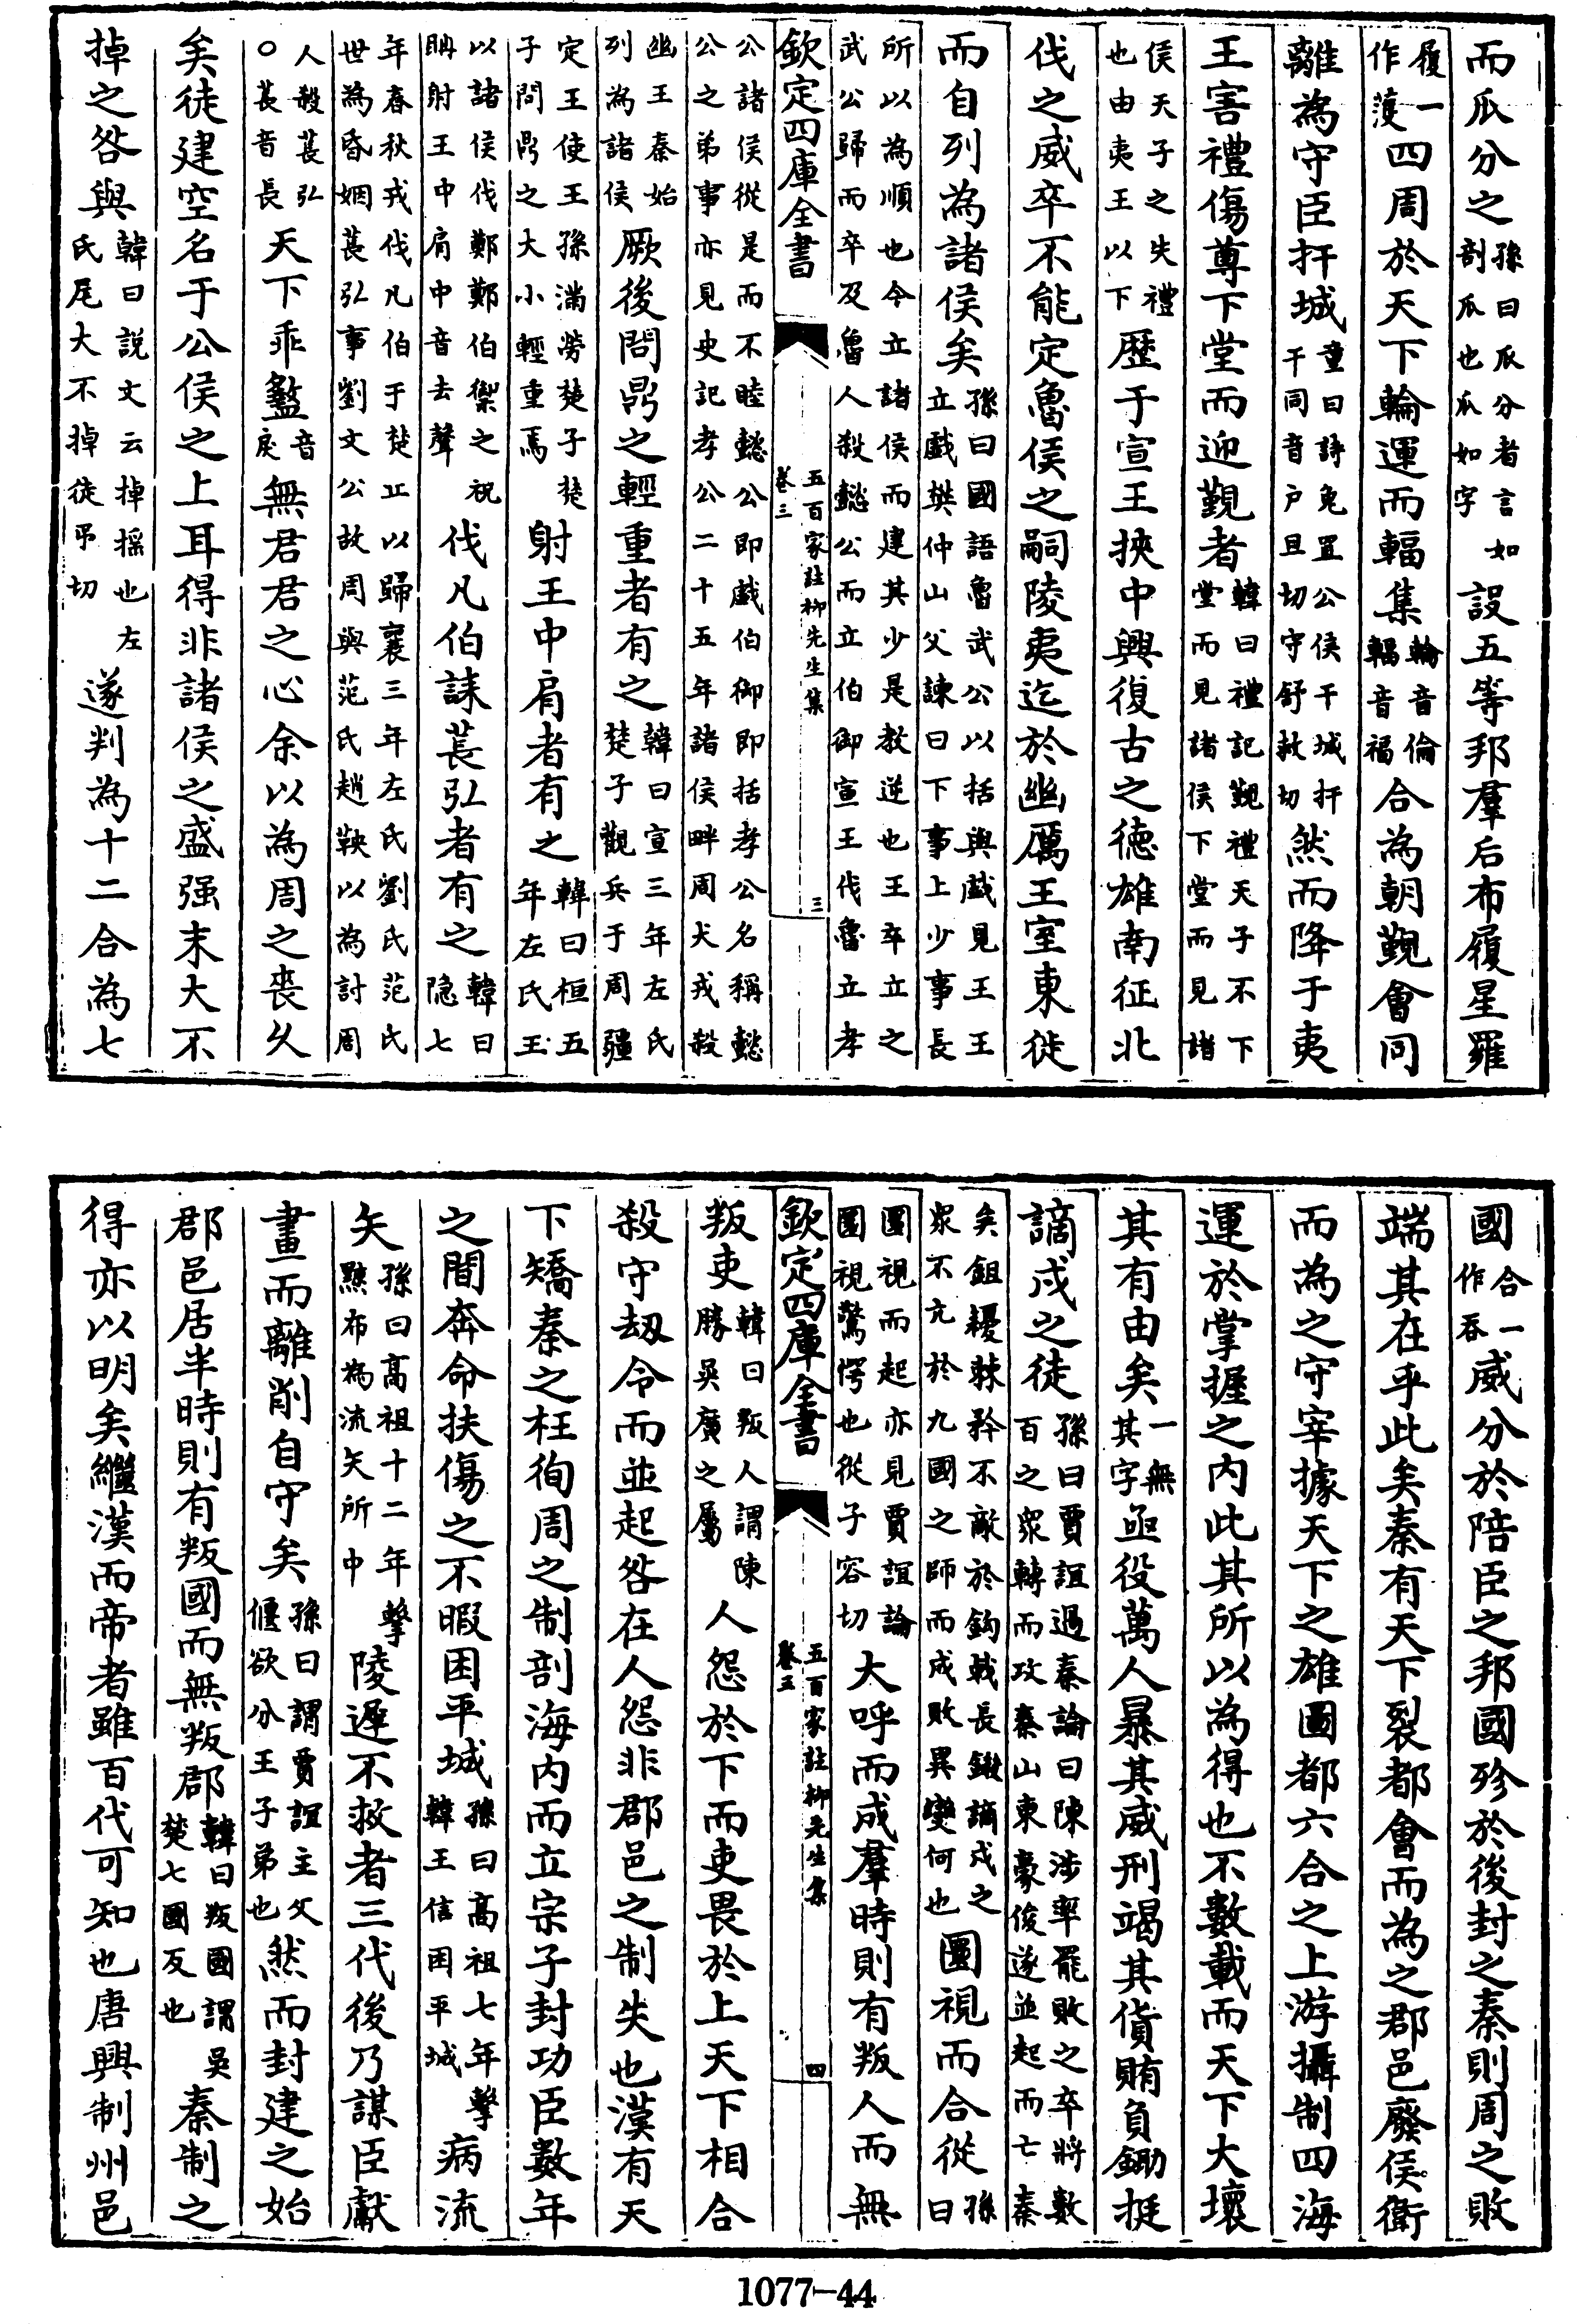 而瓜分之孫曰瓜分者言如剖瓜也瓜如字設五等邦羣后布履星羅
履一作濩四周於天下輪運而輻集輪音倫輻音福合為朝覲會同
離為守臣扞城童曰詩兔罝公侯干城扞干同音户旦切守舒救切然而降于夷
王害禮傷尊下堂而迎覲者韓曰禮記覲禮天子不下堂而見諸侯下堂而見諸
侯天子之失禮也由夷王以下歴于宣王挾中興復古之德雄南征北
伐之威卒不能定魯侯之嗣陵夷迄於幽厲王室東徙
而自列為諸侯矣孫曰國語魯武公以括與戲見王王立戲樊仲山父諫曰下事上少事長
所以為順也今立諸侯而建其少是教逆也王卒立之武公歸而卒及魯人殺懿公而立伯御宣王伐魯立孝
欽定四庫全書 五百家註柳先生集 卷三 三
公諸侯從是而不睦懿公即戲伯御即括孝公名稱懿公之弟事亦見史記孝公二十五年諸侯畔周犬戎殺
幽王秦始列為諸侯厥後問鼎之輕重者有之韓曰宣三年左氏楚子觀兵于周疆
定王使王孫滿勞楚子楚子問鼎之大小輕重焉射王中肩者有之韓曰桓五年左氏王
以諸侯伐鄭鄭伯禦之祝聃射王中肩中音去聲伐凡伯誅萇弘者有之韓曰隐七
年春秋戎伐凡伯于楚丘以歸襄三年左氏劉氏范氏世為昏姻萇弘事劉文公故周與范氏趙鞅以為討周
人殺萇弘○萇音長天下乖盭音戾無君君之心余以為周之喪久
矣徒建空名于公侯之上耳得非諸侯之盛强末大不
掉之咎與韓曰説文云掉揺也左氏尾大不掉徒弔切遂判為十二合為七
國合一作吞威分於陪臣之邦國殄於後封之秦則周之敗
端其在乎此矣秦有天下裂都會而為之郡邑廢侯衛
而為之守宰據天下之雄圖都六合之上游攝制四海
運於掌握之内此其所以為得也不數載而天下大壞
其有由矣一無其字亟役萬人暴其威刑竭其貨賄負鋤挺
謫戍之徒孫曰賈誼過秦論曰陳涉率罷敗之卒將數百之衆轉而攻秦山東豪俊遂並起而亡秦
矣鉏耰棘矜不敵於鈎戟長鎩謫戍之衆不亢於九國之師而成敗異變何也圜視而合從孫曰
圜視而起亦見賈誼論圜視驚愕也從子容切大呼而成羣時則有叛人而無
欽定四庫全書 五百家註柳先生集 卷三 四
叛吏韓曰叛人謂陳勝吳廣之屬人怨於下而吏畏於上天下相合
殺守刼令而並起咎在人怨非郡邑之制失也漢有天
下矯秦之枉徇周之制剖海内而立宗子封功臣數年
之間奔命扶傷之不暇困平城孫曰高祖七年擊韓王信困平城病流
矢孫曰高祖十二年擊黥布為流矢所中陵遲不救者三代後乃謀臣獻
畫而離削自守矣孫曰謂賈誼主父偃欲分王子弟也然而封建之始
郡邑居半時則有叛國而無叛郡韓曰叛國謂吳楚七國反也秦制之
得亦以明矣繼漢而帝者雖百代可知也唐興制州邑
1077-44